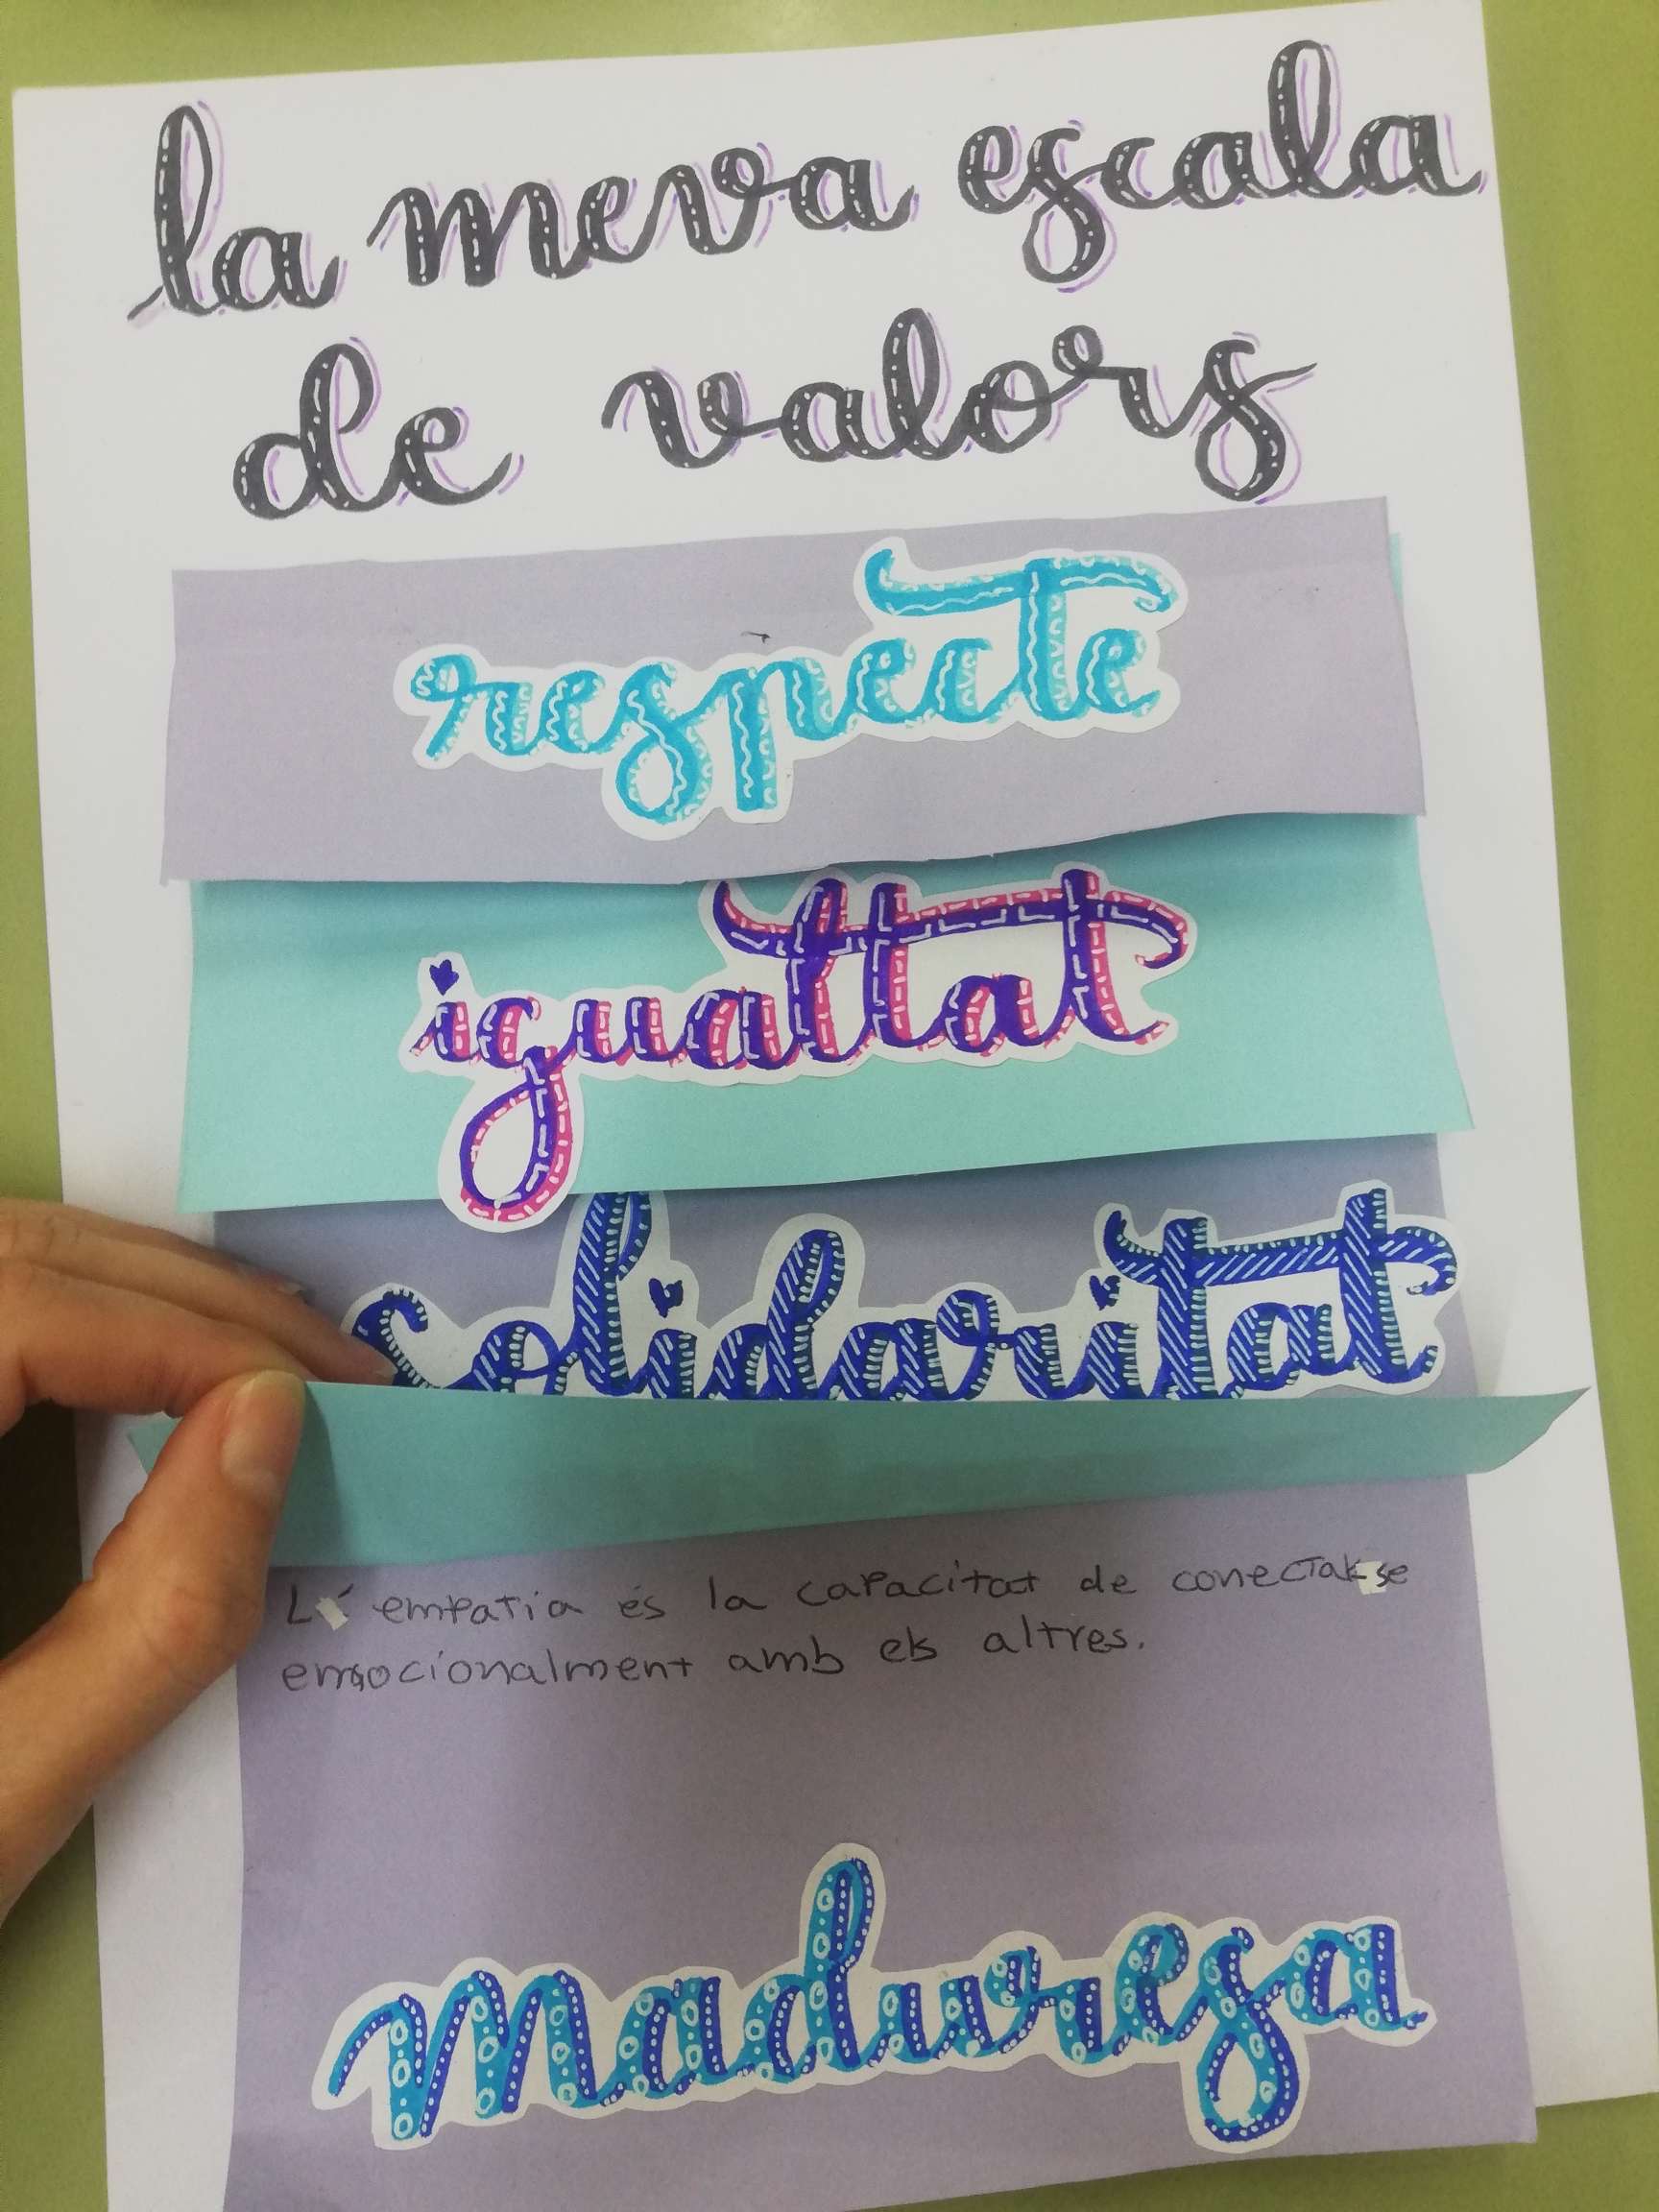 la meva escala
de valors
respecte
igualtat
solidaritat
L' empatia és la capacitat de conectar-se
emocionalment amb els altres.
maduresa